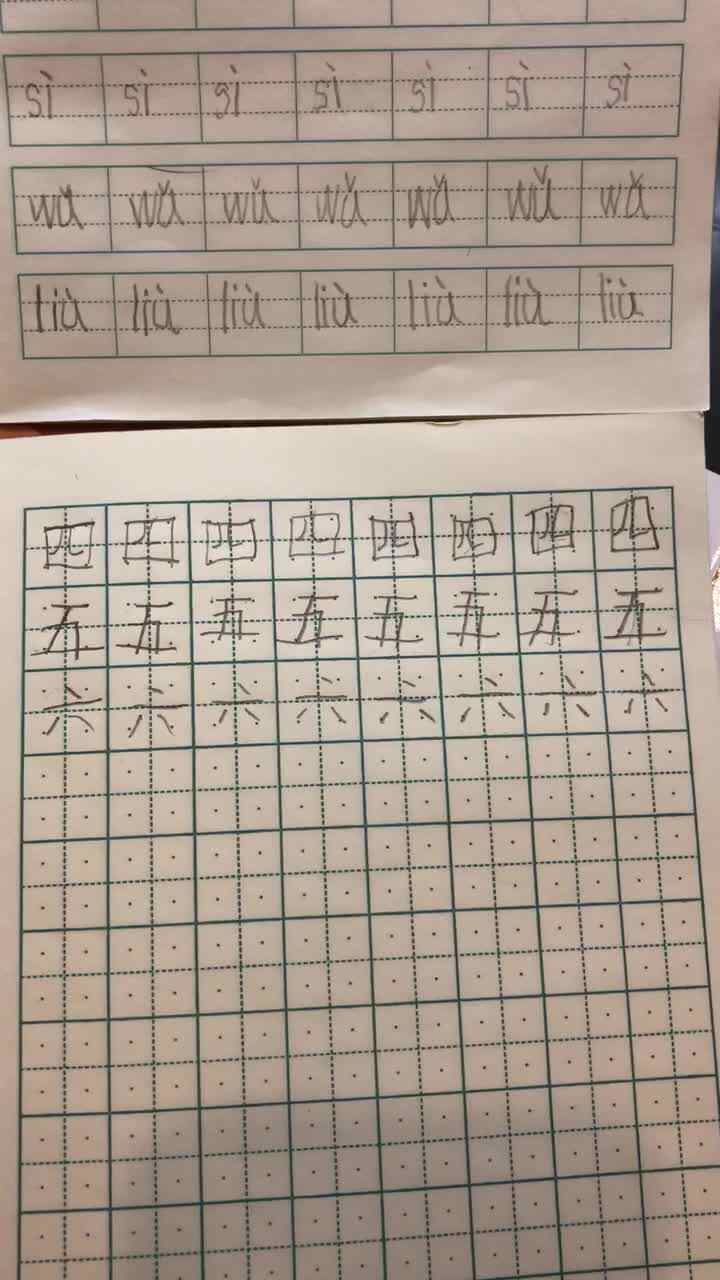 sì sì sì sì sì sì sì
wǔ wǔ wǔ wǔ wǔ wǔ wǔ
liù liù liù liù liù liù liù
四 四 四 四 四 四 四 四
五 五 五 五 五 五 五 五
六 六 六 六 六 六 六 六